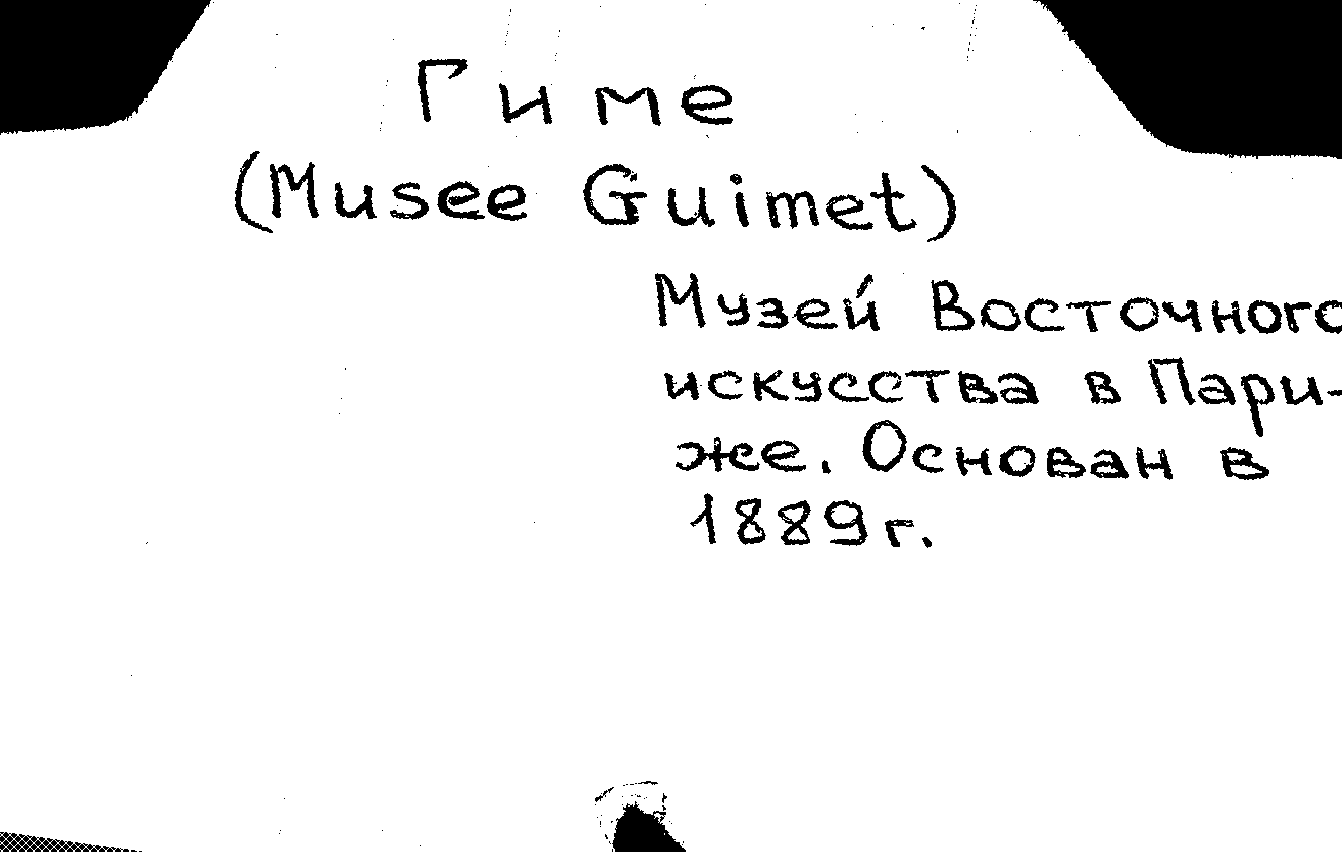 Гиме
(Musee Guimet)
Музей Восточного
искусства в Пари-
же. Основан в
1889г.